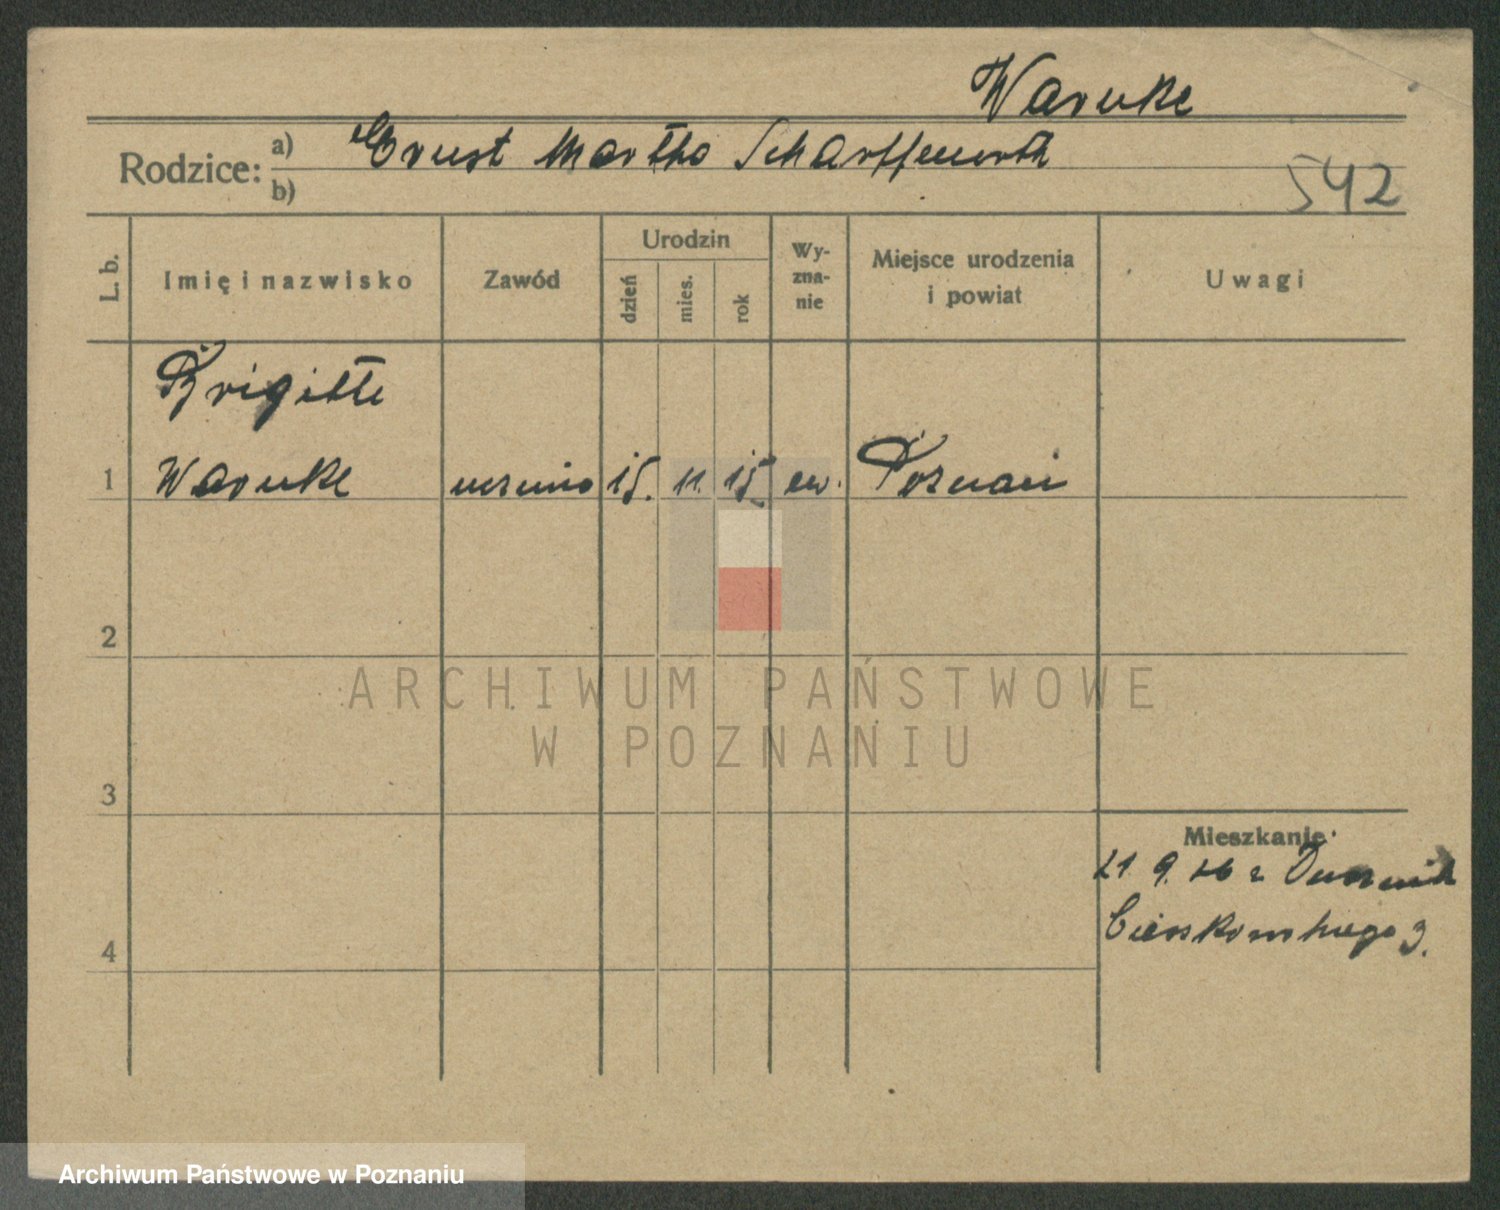 Warnke
Rodzice: a) Ernst Martha Scharffenorth
b)
542
L. b. Imię i nazwisko Zawód Urodzin dzień mies. rok Wy-zna-nie Miejsce urodzenia i powiat Uwagi
Brigitte
1 Warnke uczenica 15. 11. 15 ew. Poznań
2
ARCHIWUM PAŃSTWOWE
W POZNANIU
3
Mieszkanie
21. 9. 26 z
Cieszkowskiego 3.
4
Archiwum Państwowe w Poznaniu